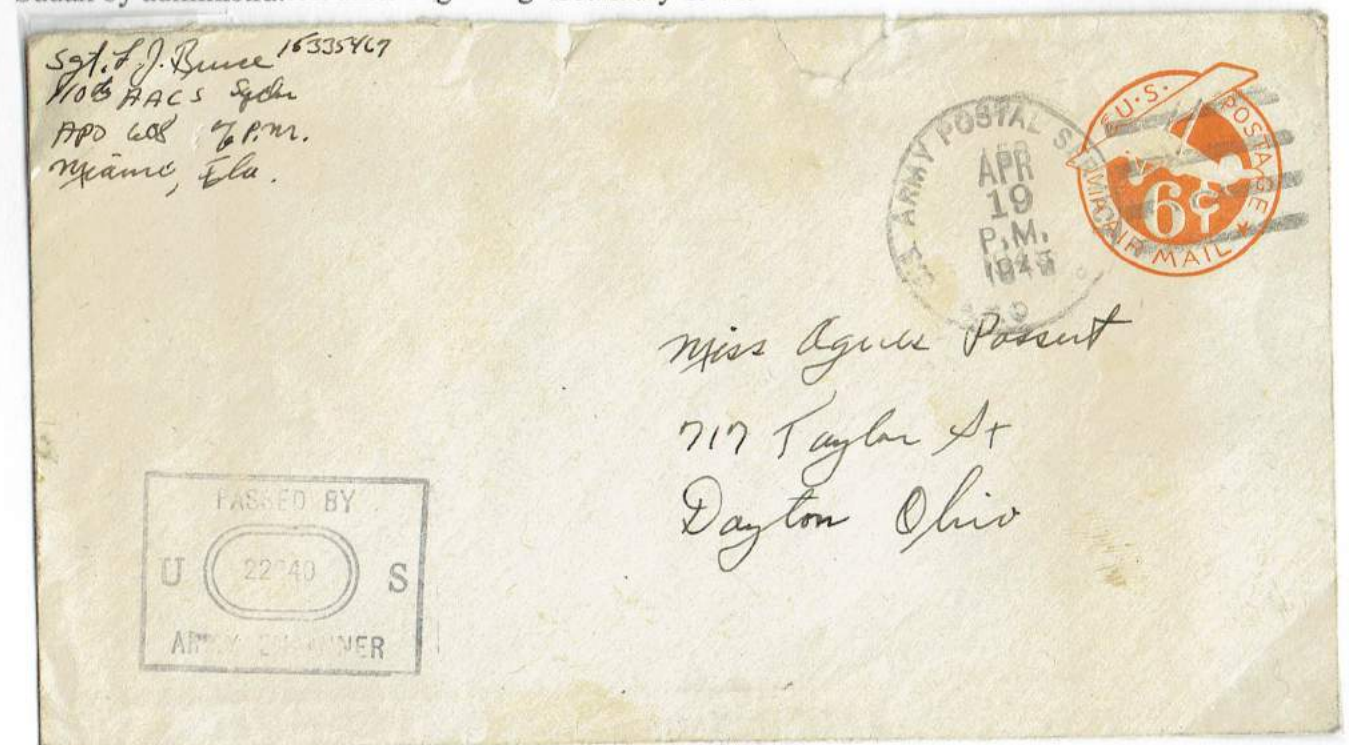 Sgt. F. J. Bruce 16335467
110th AACS Sqdn
APO 608 % P.M.
Miami, Fla.
U.S. ARMY POSTAL
APR
19
P.M.
1943
U.S. POSTAGE
6¢
AIR MAIL
Miss Agnes Possert
717 Taylor St
Dayton Ohio
PASSED BY
U S
ARMY EXAMINER